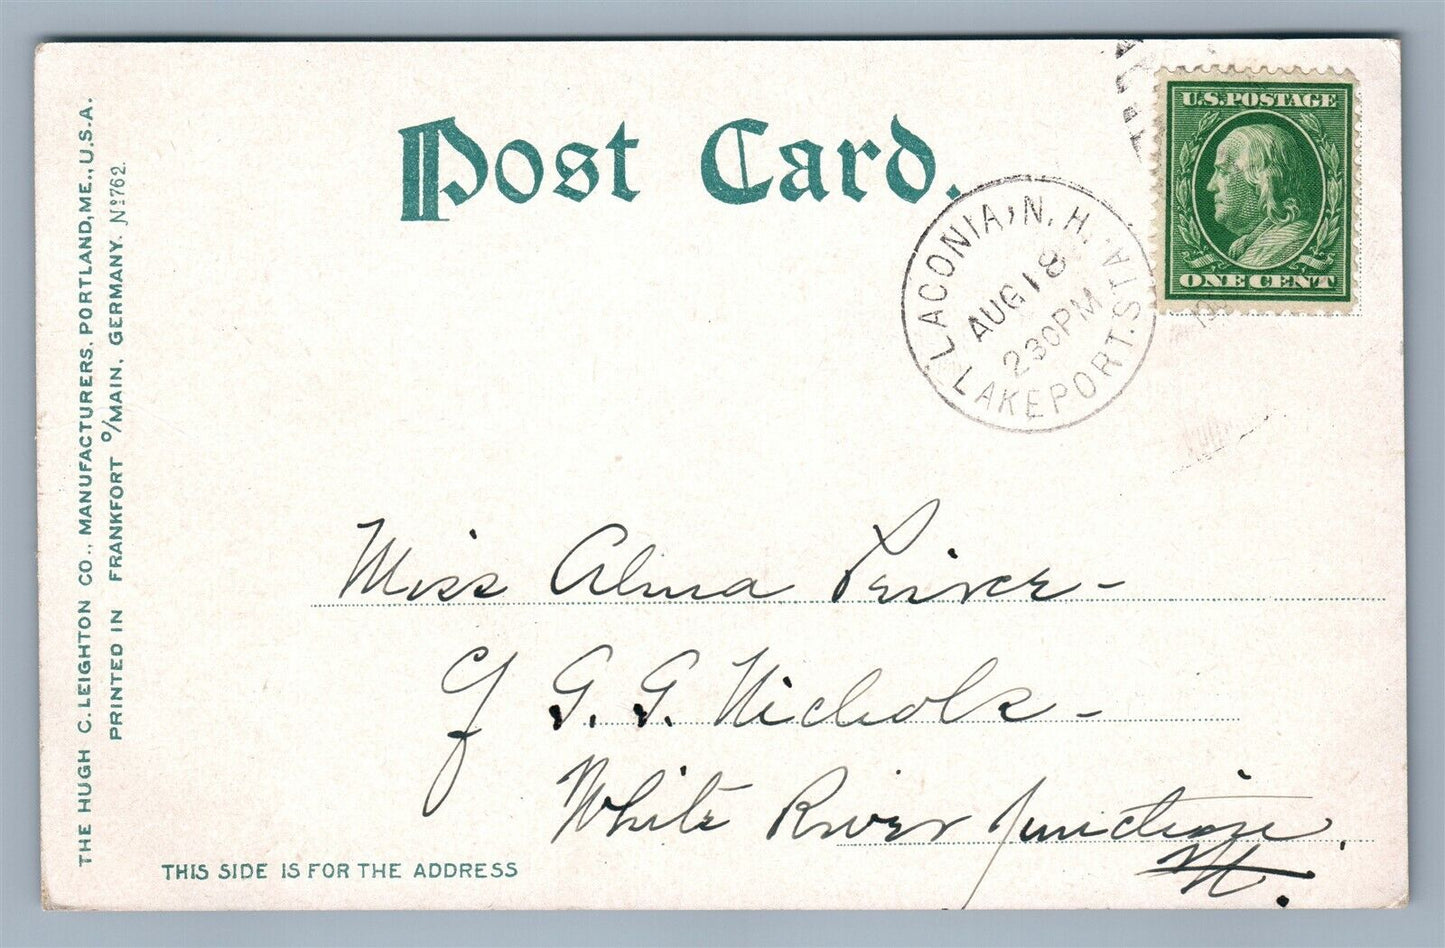 Post Card.
U.S. POSTAGE
ONE CENT
LACONIA, N.H.
LAKEPORT. STA.
AUG 18
230PM
Miss Alma
c/ G. G. Nichols -
White River Junction,
Vt.
THIS SIDE IS FOR THE ADDRESS
THE HUGH C. LEIGHTON CO., MANUFACTURERS, PORTLAND, ME., U.S.A.
PRINTED IN FRANKFORT O/MAIN, GERMANY. No 762